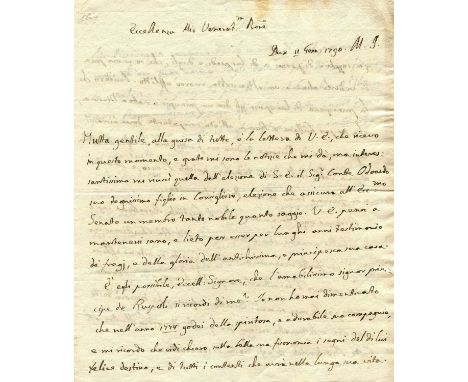 Eccellenza Mio Venerat.mo Prone
Dux 11 Gen. 1790.
Molto gentile, alla guisa di tutte, è la lettera di V. E., che ricevo
in questo momento, e grate mi sono le notizie che mi dà, ma interes-
santissima mi riuscì quella dell'elezione di S. E. il Sig.r Conte Odoardo
suo degnissimo figlio in Consigliere, elezione che assicura all'Ecc.mo
Senato un membro tanto nobile quanto saggio. V. E. pensi a
mantenersi sano, e lieto per esser per lunghi anni testimonio
de' fregj, e della gloria dell'antichissima, e principesca sua casa.
È egli possibile, Eccell. Signore, che l'amabilissimo signor prin-
cipe de Ruspoli si ricordi di me? Io non ho mai dimenticato
che nell'anno 1778 godei della spiritosa, e adorabile sua compagnia,
e mi ricordo che vidi chiaro sulla bella sua fisonomia i segni del di lui
felice destino, e di tutti i contenti che avrà nella lunga sua vita.